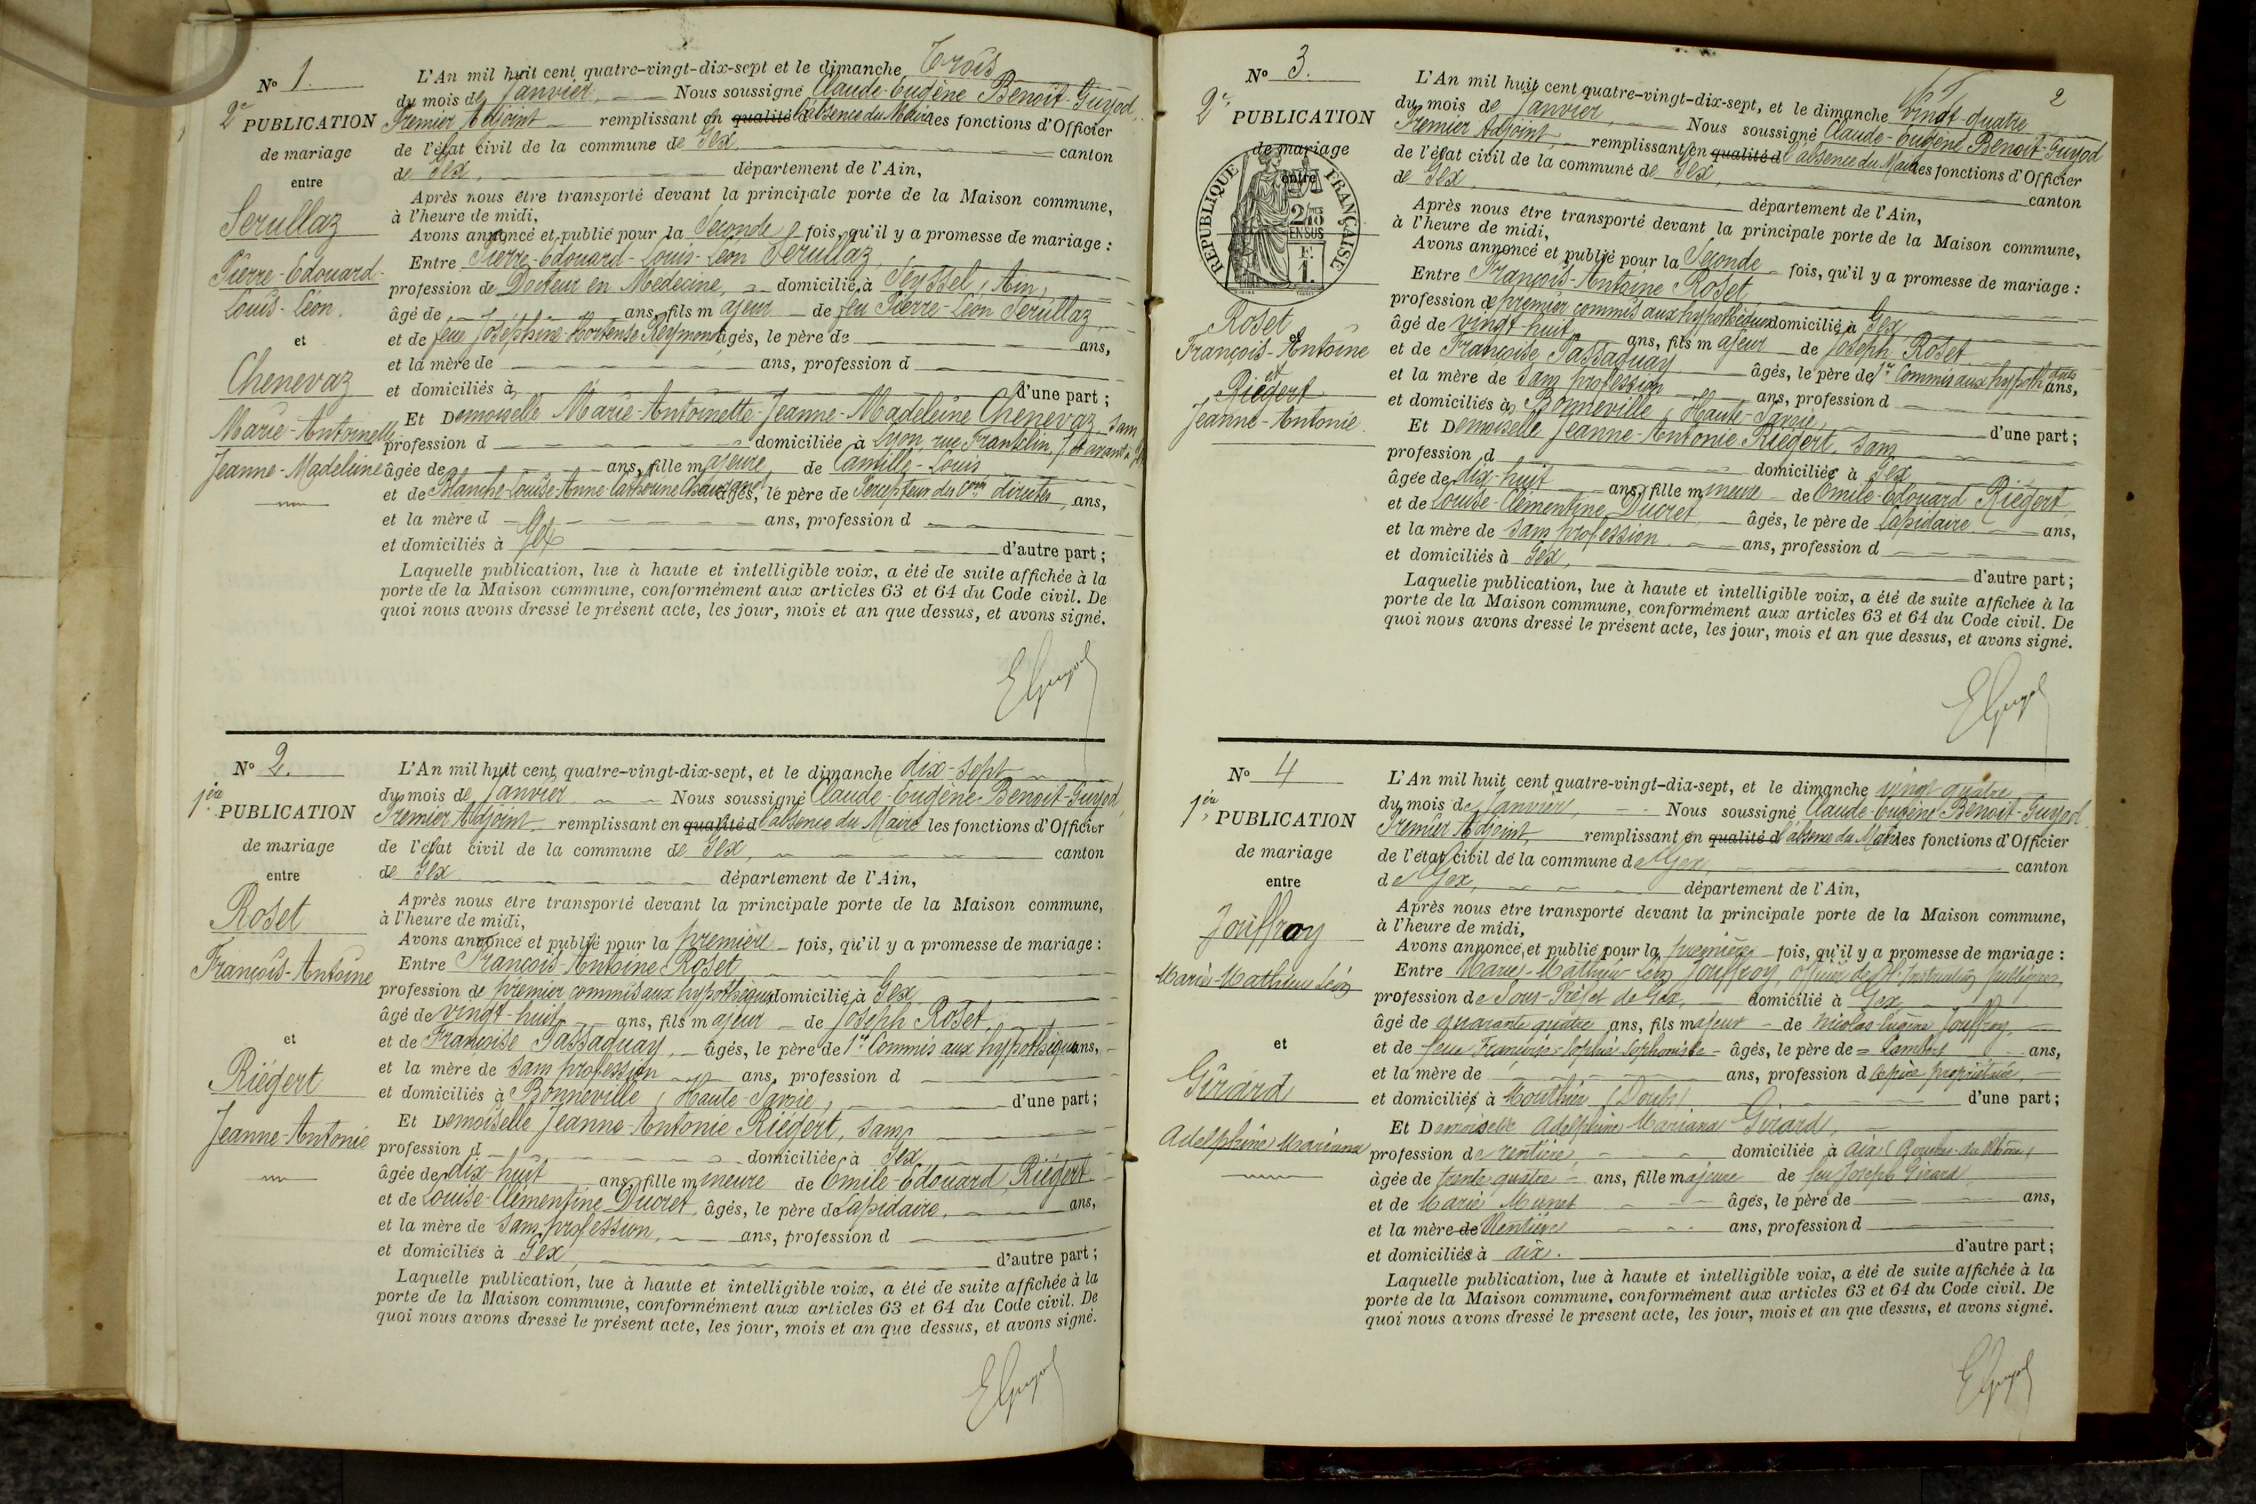 N° 1.
2e PUBLICATION
de mariage
entre
Serullaz
Pierre-Edouard-
Louis-Léon.
et
Chenevaz
Marie-Antoinette
Jeanne-Madeleine
L'An mil huit cent quatre-vingt-dix-sept et le dimanche Trois
du mois de Janvier, Nous soussigné Claude-Eugène Benoit-Guyod,
Premier Adjoint remplissant en qualité d l'absence du Maire les fonctions d'Officier
de l'état civil de la commune de Gex canton
de Gex, département de l'Ain,
Après nous être transporté devant la principale porte de la Maison commune,
à l'heure de midi,
Avons annoncé et publié pour la Seconde fois, qu'il y a promesse de mariage :
Entre Pierre-Edouard-Louis-Léon Serullaz,
profession de Docteur en Medecine, domicilié à Seyssel, Ain,
âgé de ans, fils majeur de feu Pierre-Léon Serullaz,
et de feue Joséphine-Hortense Reymond âgés, le père de ans,
et la mère de ans, profession d
et domiciliés à d'une part ;
Et Demoiselle Marie-Antoinette-Jeanne-Madeleine Chenevaz sans
profession d domiciliée à Lyon, rue Franklin, et avant à
âgée de ans, fille majeure de Camille-Louis
et de Blanche-Louise-Anne âgés, le père de Percepteur des con directes, ans,
et la mère d ans, profession d
et domiciliés à Gex d'autre part ;
Laquelle publication, lue à haute et intelligible voix, a été de suite affichée à la
porte de la Maison commune, conformément aux articles 63 et 64 du Code civil. De
quoi nous avons dressé le présent acte, les jour, mois et an que dessus, et avons signé.
EGuyod
N° 2.
1ère PUBLICATION
de mariage
entre
Roset
François-Antoine
et
Riégert
Jeanne-Antonie
L'An mil huit cent quatre-vingt-dix-sept, et le dimanche dix-sept
du mois de Janvier Nous soussigné Claude-Eugène-Benoit-Guyod,
Premier Adjoint remplissant en qualité d l'absence du Maire les fonctions d'Officier
de l'état civil de la commune de Gex, canton
de Gex département de l'Ain,
Après nous être transporté devant la principale porte de la Maison commune,
à l'heure de midi,
Avons annoncé et publié pour la première fois, qu'il y a promesse de mariage :
Entre François-Antoine Roset
profession de premier commis aux hypothèques domicilié à Gex
âgé de vingt-huit ans, fils majeur de Joseph Roset
et de Françoise Passaquay, âgés, le père de 1er Commis aux hypothèques ans,
et la mère de sans profession ans, profession d
et domiciliés à Bonneville, Haute-Savoie, d'une part ;
Et Demoiselle Jeanne-Antonie Riégert, sans
profession d domiciliée à Gex
âgée de dix-huit ans, fille mineure de Emile-Edouard Riégert
et de Louise-Clémentine Ducret, âgés, le père de Lapidaire, ans,
et la mère de sans profession, ans, profession d
et domiciliés à Gex, d'autre part ;
Laquelle publication, lue à haute et intelligible voix, a été de suite affichée à la
porte de la Maison commune, conformément aux articles 63 et 64 du Code civil. De
quoi nous avons dressé le présent acte, les jour, mois et an que dessus, et avons signé.
EGuyod
2
N° 3.
2e PUBLICATION
de mariage
entre
RÉPUBLIQUE FRANÇAISE
2/10 EN SUS
F. 1
Roset
François-Antoine
et
Riégert
Jeanne-Antonie.
L'An mil huit cent quatre-vingt-dix-sept, et le dimanche Vingt-quatre
du mois de Janvier, Nous soussigné Claude-Eugène Benoit-Guyod
Premier Adjoint, remplissant en qualité d l'absence du Maire les fonctions d'Officier
de l'état civil de la commune de Gex, canton
de Gex, département de l'Ain,
Après nous être transporté devant la principale porte de la Maison commune,
à l'heure de midi,
Avons annoncé et publié pour la Seconde fois, qu'il y a promesse de mariage :
Entre François-Antoine Roset
profession de premier commis aux hypothèques domicilié à Gex
âgé de vingt-huit ans, fils majeur de Joseph Roset
et de Françoise Passaquay âgés, le père de 1er Commis aux hypothèques ans,
et la mère de sans profession ans, profession d
et domiciliés à Bonneville, Haute-Savoie, d'une part ;
Et Demoiselle Jeanne-Antonie Riégert, sans
profession d domiciliée à Gex
âgée de dix-huit ans, fille mineure de Emile-Edouard Riégert
et de Louise-Clémentine Ducret, âgés, le père de Lapidaire ans,
et la mère de sans profession ans, profession d
et domiciliés à Gex, d'autre part ;
Laquelle publication, lue à haute et intelligible voix, a été de suite affichée à la
porte de la Maison commune, conformément aux articles 63 et 64 du Code civil. De
quoi nous avons dressé le présent acte, les jour, mois et an que dessus, et avons signé.
EGuyod
N° 4
1ère PUBLICATION
de mariage
entre
Jouffroy
Marie-Mathieu Léon
et
Girard
Adelphine Mariana
L'An mil huit cent quatre-vingt-dix-sept, et le dimanche vingt quatre
du mois de Janvier, Nous soussigné Claude-Eugène-Benoit-Guyod,
Premier Adjoint, remplissant en qualité d l'absence du Maire les fonctions d'Officier
de l'état civil de la commune de Gex, canton
de Gex, département de l'Ain,
Après nous être transporté devant la principale porte de la Maison commune,
à l'heure de midi,
Avons annoncé et publié pour la première fois, qu'il y a promesse de mariage :
Entre Marie-Mathieu Léon Jouffroy, officier de l'Instruction publique,
profession de Sous-Préfet de Gex, domicilié à Gex
âgé de quarante quatre ans, fils majeur de Nicolas-Eugène Jouffroy,
et de feue Françoise-Sophie Sophoniste âgés, le père de ans,
et la mère de ans, profession d le père propriétaire,
et domiciliés à Mouthier (Doubs) d'une part ;
Et Demoiselle Adelphine Mariana Girard,
profession de rentière domiciliée à Aix (Bouches-du-Rhône)
âgée de trente quatre ans, fille majeure de feu Joseph Girard,
et de Marie Munet âgés, le père de ans,
et la mère de Rentière ans, profession d
et domiciliés à Aix. d'autre part ;
Laquelle publication, lue à haute et intelligible voix, a été de suite affichée à la
porte de la Maison commune, conformément aux articles 63 et 64 du Code civil. De
quoi nous avons dressé le présent acte, les jour, mois et an que dessus, et avons signé.
EGuyod